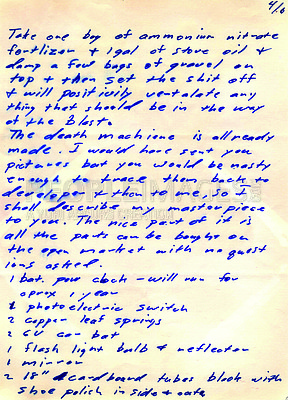 4/6
Take one bag of ammonium nitrate
fertlizer + 1 gal of stove oil &
dump a few bags of gravel on
top + then set the shit off
+ will positivily ventalate any
thing that should be in the way
of the Blast.
The death machiene is allready
made. I would have sent you
pictures but you would be nasty
enough to trace them back to
developer + then to me, so I
shall describe my masterpiece
to you. The nice part of it is
all the parts can be bought on
the open market with no quest
ions asked.
1 bat. pow clock - will run for
aprox 1 year
1 photoelectric switch
2 copper leaf springs
2 6V car bat
1 flash light bulb & reflector
1 mirror
2 18" cardboard tubes black with
shoe polish in side & oute